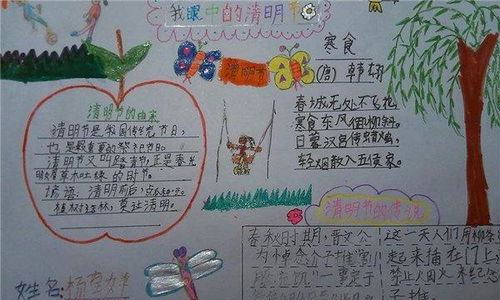 我眼中的清明节
清明节
寒食
(唐) 韩翃
春城无处不飞花
寒食东风御柳斜。
日暮汉宫传蜡烛,
轻烟散入五侯家。
清明节的由来
清明节是我国传统节日,
也是最重要的祭祀节日。
清明节又叫踏青节,正是春光
明媚草木吐绿的时节。
谚语:清明前后,点瓜种豆。
植树造林,莫过清明。
清明节的传说
春秋时期,晋文公
为悼念介子推
一重定于
这一天人们用柳条
起来插在门上
禁止人田火
子推
姓名:杨